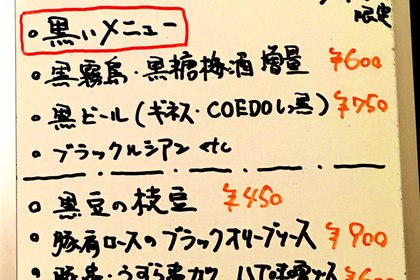 限定
・黒いメニュー
・黒霧島・黒糖梅酒 増量 ¥600
・黒ビール(ギネス・COEDO しっ黒) ¥750
・ブラックルシアン etc
・黒豆の枝豆 ¥450
・豚肩ロースのブラックオリーブソース ¥900
・豚串・うずら串カツ 八丁味噌ソース ¥600